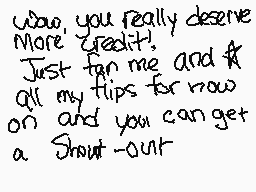 wow, you really deserve
more credit!
Just fan me and ☆
all my flips for now
on and you can get
a Shout-out